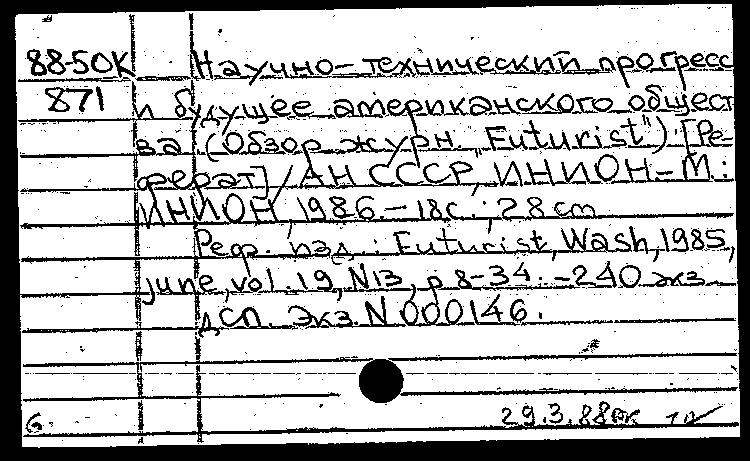 88-50К Научно-технический прогресс
871 и будущее американского общест
ва. (Обзор журн. "Futurist") [Ре-
ферат] / АН СССР, ИНИОН.-М.:
ИНИОН, 1986.-18с.; 28cm
Реф. изд.: Futurist, Wash, 1985,
june, vol. 19, N13, p 8-34. -240 экз.
ДСП. Экз. N 000146.
6. 29.3.88